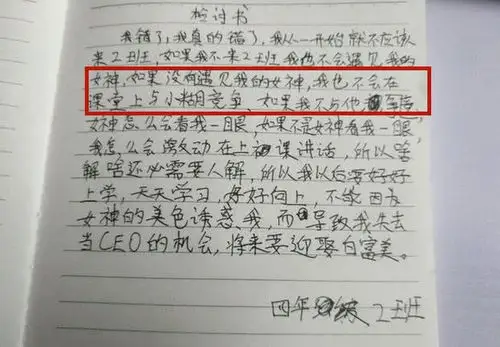 检讨书
我错了,我真的错了,我从一开始就不应该
来2班,如果我不来2班我也不会遇见我的
女神,如果没有遇见我的女神,我也不会在
课堂上与小胡竞争、如果我不与他竞争
女神怎么会看我一眼,如果不是女神看我一眼,
我怎么会激动在上课讲话,所以啥
解啥还必需要人解,所以我以后要好好
上学,天天学习,好好向上,不能因为
女神的美色诱惑我,而导致我失去
当CEO的机会,将来要迎娶白富美。
四年级2班